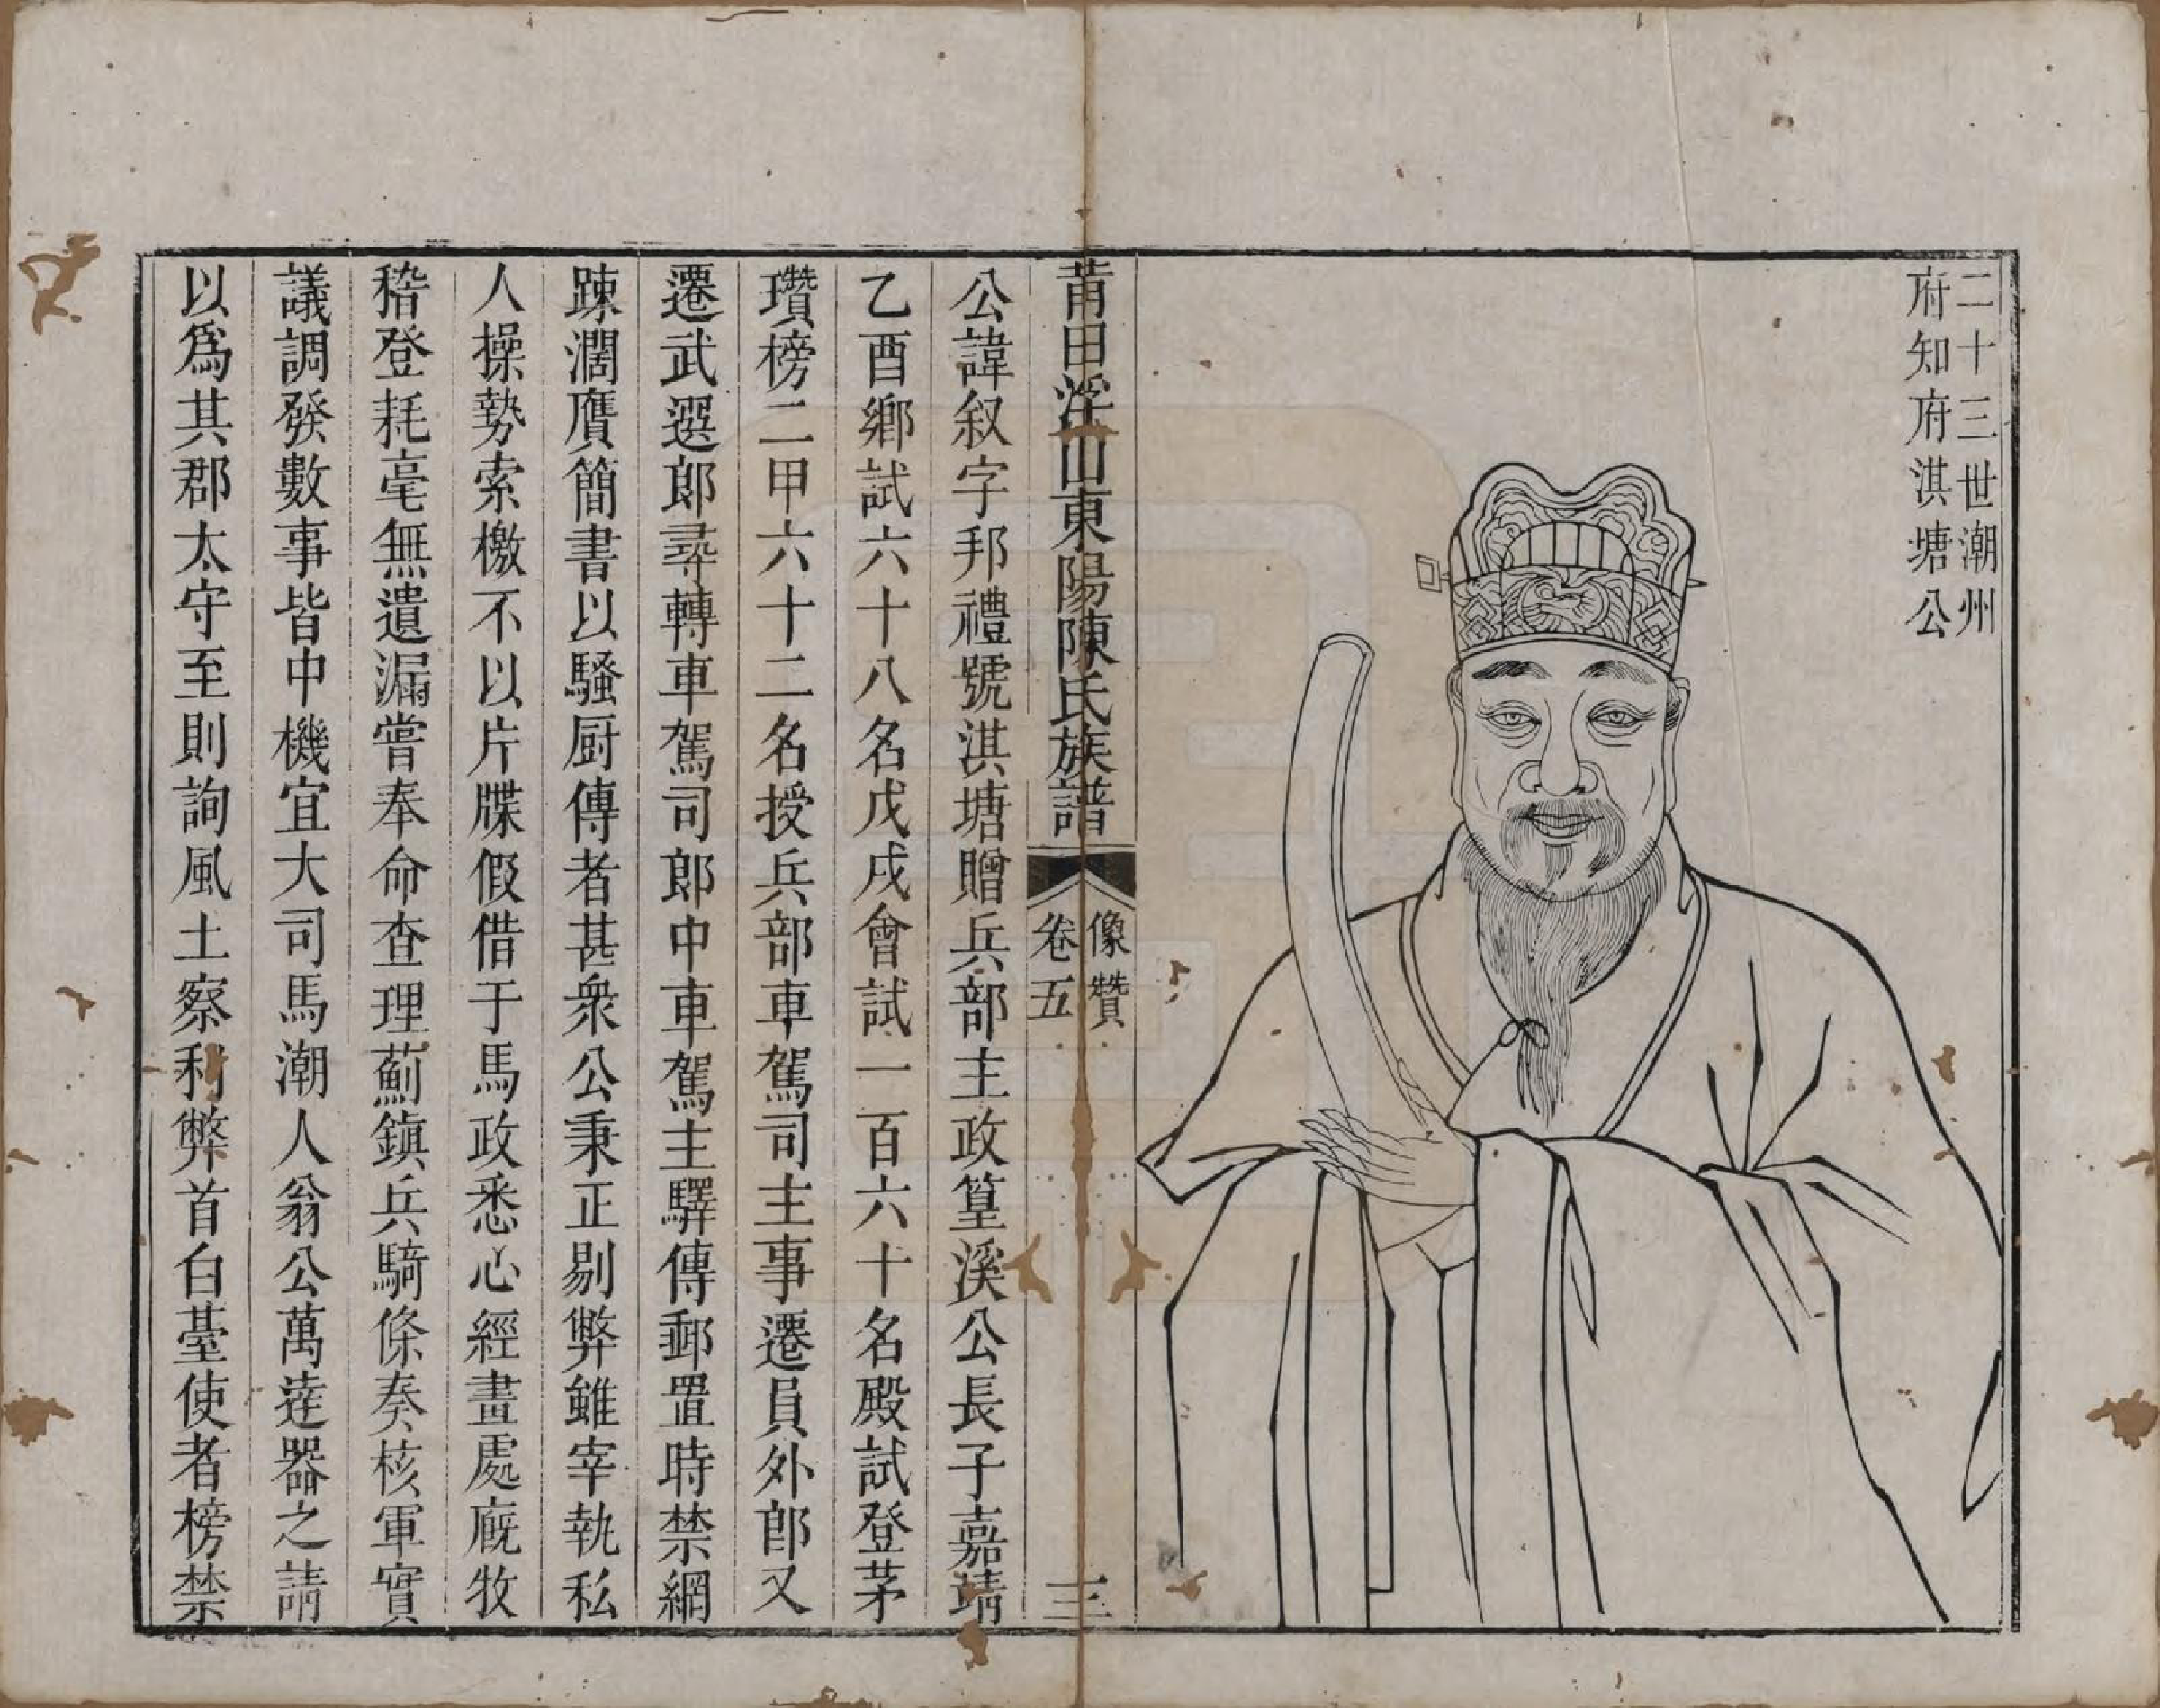 二十三世潮州
府知府淇塘公
莆田浮山東陽陳氏族譜
像贊
卷五
三
公諱叙字邦禮號淇塘贈兵部主政篁溪公長子嘉靖
乙酉鄉試六十八名戊戌會試一百六十名殿試登茅
瓚榜二甲六十二名授兵部車駕司主事遷員外郎又
遷武選郎尋轉車駕司郎中車駕主驛傳郵置時禁網
踈濶贋簡書以騷厨傳者甚衆公秉正剔弊雖宰執私
人操勢索檄不以片牒假借于馬政悉心經畫處廐牧
稽登耗毫無遺漏嘗奉命查理薊鎮兵騎條奏核軍實
議調發數事皆中機宜大司馬潮人翁公萬達器之請
以爲其郡太守至則詢風土察利弊首白臺使者榜禁